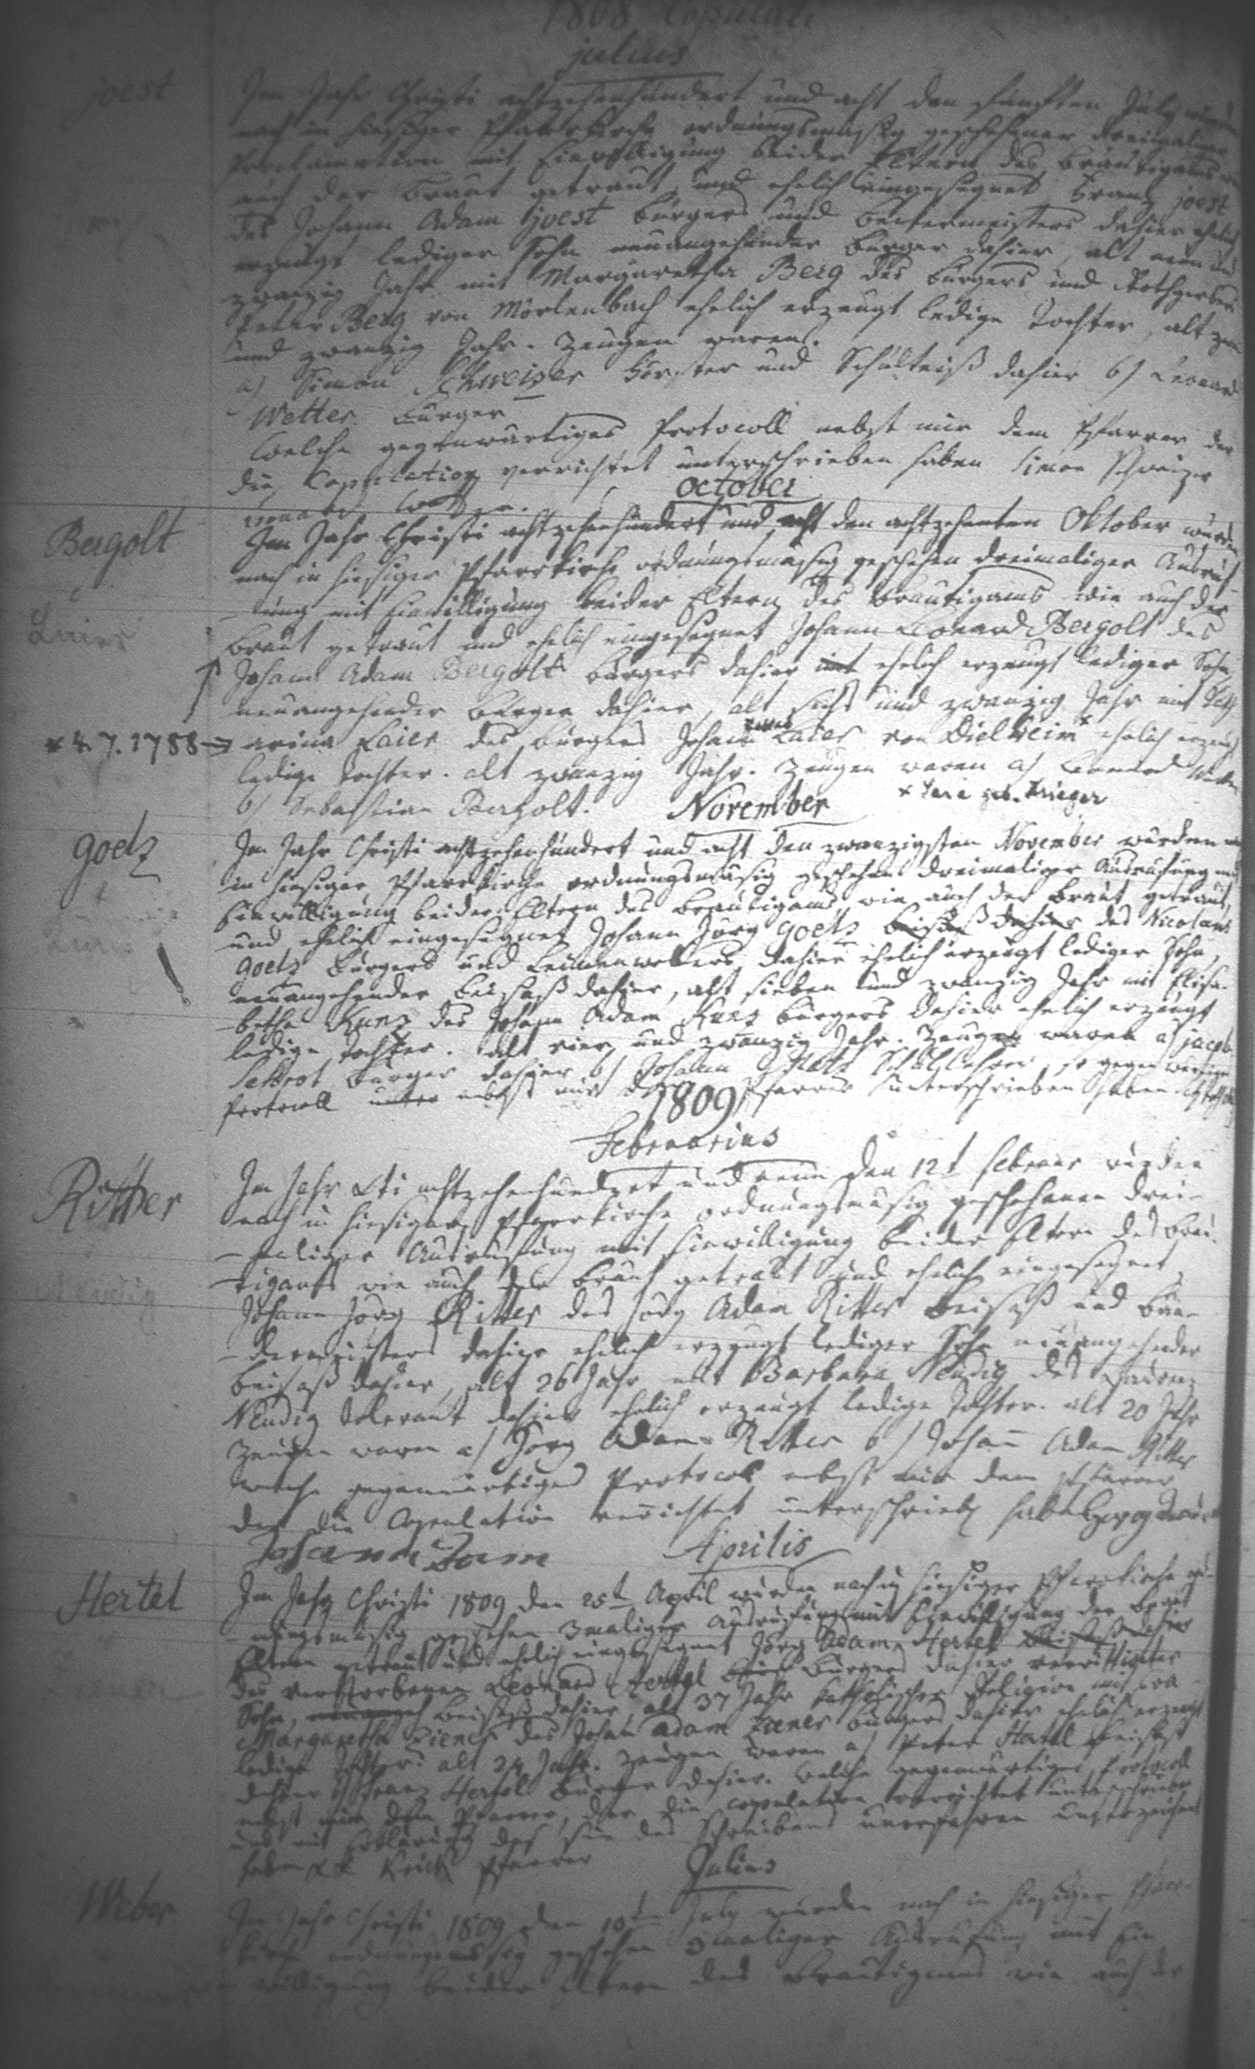 1808 Copulati
julius
joest
Im Jahr Christi achtzehenhundert und acht den fünften July wurden
nach in hiesiger Pfarrkirche ordnungsmäsig geschehener dreimaliger
Proclamation mit Einwilligung beider Eltern des Bräutigams
auch der Braut getraut und ehelich eingesegnet Franz joest
des Johann Adam Joest bürgers und beckermeisters dahier ehelich
erzeugt lediger Sohn neuangehender bürger dahier, alt neun und
zwanzig Jahr mit Margaretha Berg des bürgers und Rothgerbers
Peter Berg von Mörlenbach ehelich erzeugt ledige Tochter, alt
und zwanzig Jahr. Zeugen waren.
a) Simon Schweizer Förster und Schultheiß dahier b) Leonard
Wetter bürger
welche gegenwärtiges Protocoll nebst mir dem Pfarrer der
die Copulation verrichtet unterschrieben haben Simon Schweizer
october
Bergolt
Laier
Im Jahr Christi achtzehenhundert und acht den achtzehenten Oktober wurden
nach in hiesiger Pfarrkirche ordnungsmäsig geschehen dreimaliger Ausruf-
ung mit Einwilligung beider Eltern des bräutigams wie auch der
braut getraut und ehelich eingesegnet Johann Leonard Bergolt des
Johann Adam Bergolt bürgers dahier ehelich erzeugt lediger Sohn
neuangehender bürger dahier, alt sechs und zwanzig Jahr mit Cath-
* 4.7.1788 → arina Laier des bürgers Johann Laier von Dielheim * ehelich erzeugt
ledige Tochter. alt zwanzig Jahr. Zeugen waren a) Leonard Wetter
b) Sebastian Bergolt. * geb. Krieger
November
goetz
Im Jahr Christi achtzehenhundert und acht den zwanzigsten November wurden
in hiesiger Pfarrkirche ordnungsmäsig geschehen dreimaliger Ausrufung mit
Einwilligung beider Eltern des bräutigams wie auch der braut getraut,
und ehelich eingesegnet Johann Jörg goetz beisaß dahier des Nicolaus
goetz bürgers und Leinenwebers dahier ehelich erzeugt lediger Sohn,
neuangehender beisaß dahier, alt sieben und zwanzig Jahr mit Elisa-
betha Kunz des Johann Adam Kunz bürgers dahier ehelich erzeugt
ledige Tochter. alt vier und zwanzig Jahr. Zeugen waren a) jacob
bürger dahier b) Johann Schullehrer, so gegenwertiges
Protocoll nebst mir Pfarrer unterschrieben haben.
1809
Februarius
Ritter
Neudig
Im Jahr Xti achtzehenhundert und neun den 12t februar wurden
nach in hiesiger Pfarrkirche ordnungsmäsig geschehener drei-
-maliger Ausrufung mit Einwilligung beider Eltern des bräu-
-tigams wie auch der braut getraut und ehelich eingesegnet
Johann Jörg Ritter des Jörg Adam Ritter beisaß und
dahier ehelich erzeugt lediger Sohn neuangehender
beisaß dahier, alt 26 Jahr mit Barbara Neudig des
Neudig tolerant dahier ehelich erzeugt ledige Tochter. alt 20 Jahr
Zeugen waren a) Jörg Adam Ritter b) Johann Adam Ritter
welche gegenwärtiges Protocol nebst mir dem Pfarrer
der die Copulation verrichtet unterschrieben haben
Aprilis
Hertel
Im Jahr Christi 1809 den 25t April wurden nach in hiesiger Pfarrkirche ord-
nungsmäsig geschehen 3maliger Ausrufung mit Einwilligung der
Eltern getraut und ehelich eingesegnet Jörg Adam Hertel beisaß dahier
des verstorbenen Leonard Hertel bürgers dahier
Sohn, beisaß dahier, alt 37 Jahr katholischer Religion mit
Margaretha Ziener des Johann adam Ziener bürgers dahier ehelich erzeugt
ledige Tochter alt 24 Jahr. Zeugen waren a) Peter Hertel beisaß
dahier b) Franz Hertel bürger dahier. welche gegenwärtiges Protocoll
nebst mir dem Pfarrer, der die copulation verrichtet unterschrieben
und mit Erklärung daß sie des Schreibens unerfahren unterzeichnet
haben Pfarrer
Julius
Weber
Im Jahr Christi 1809 den 10t July wurden nach in hiesiger Pfarr-
kirche ordnungsmäsig geschehen 3maliger Ausrufung mit Ein-
willigung beider Eltern des Bräutigams wie auch der